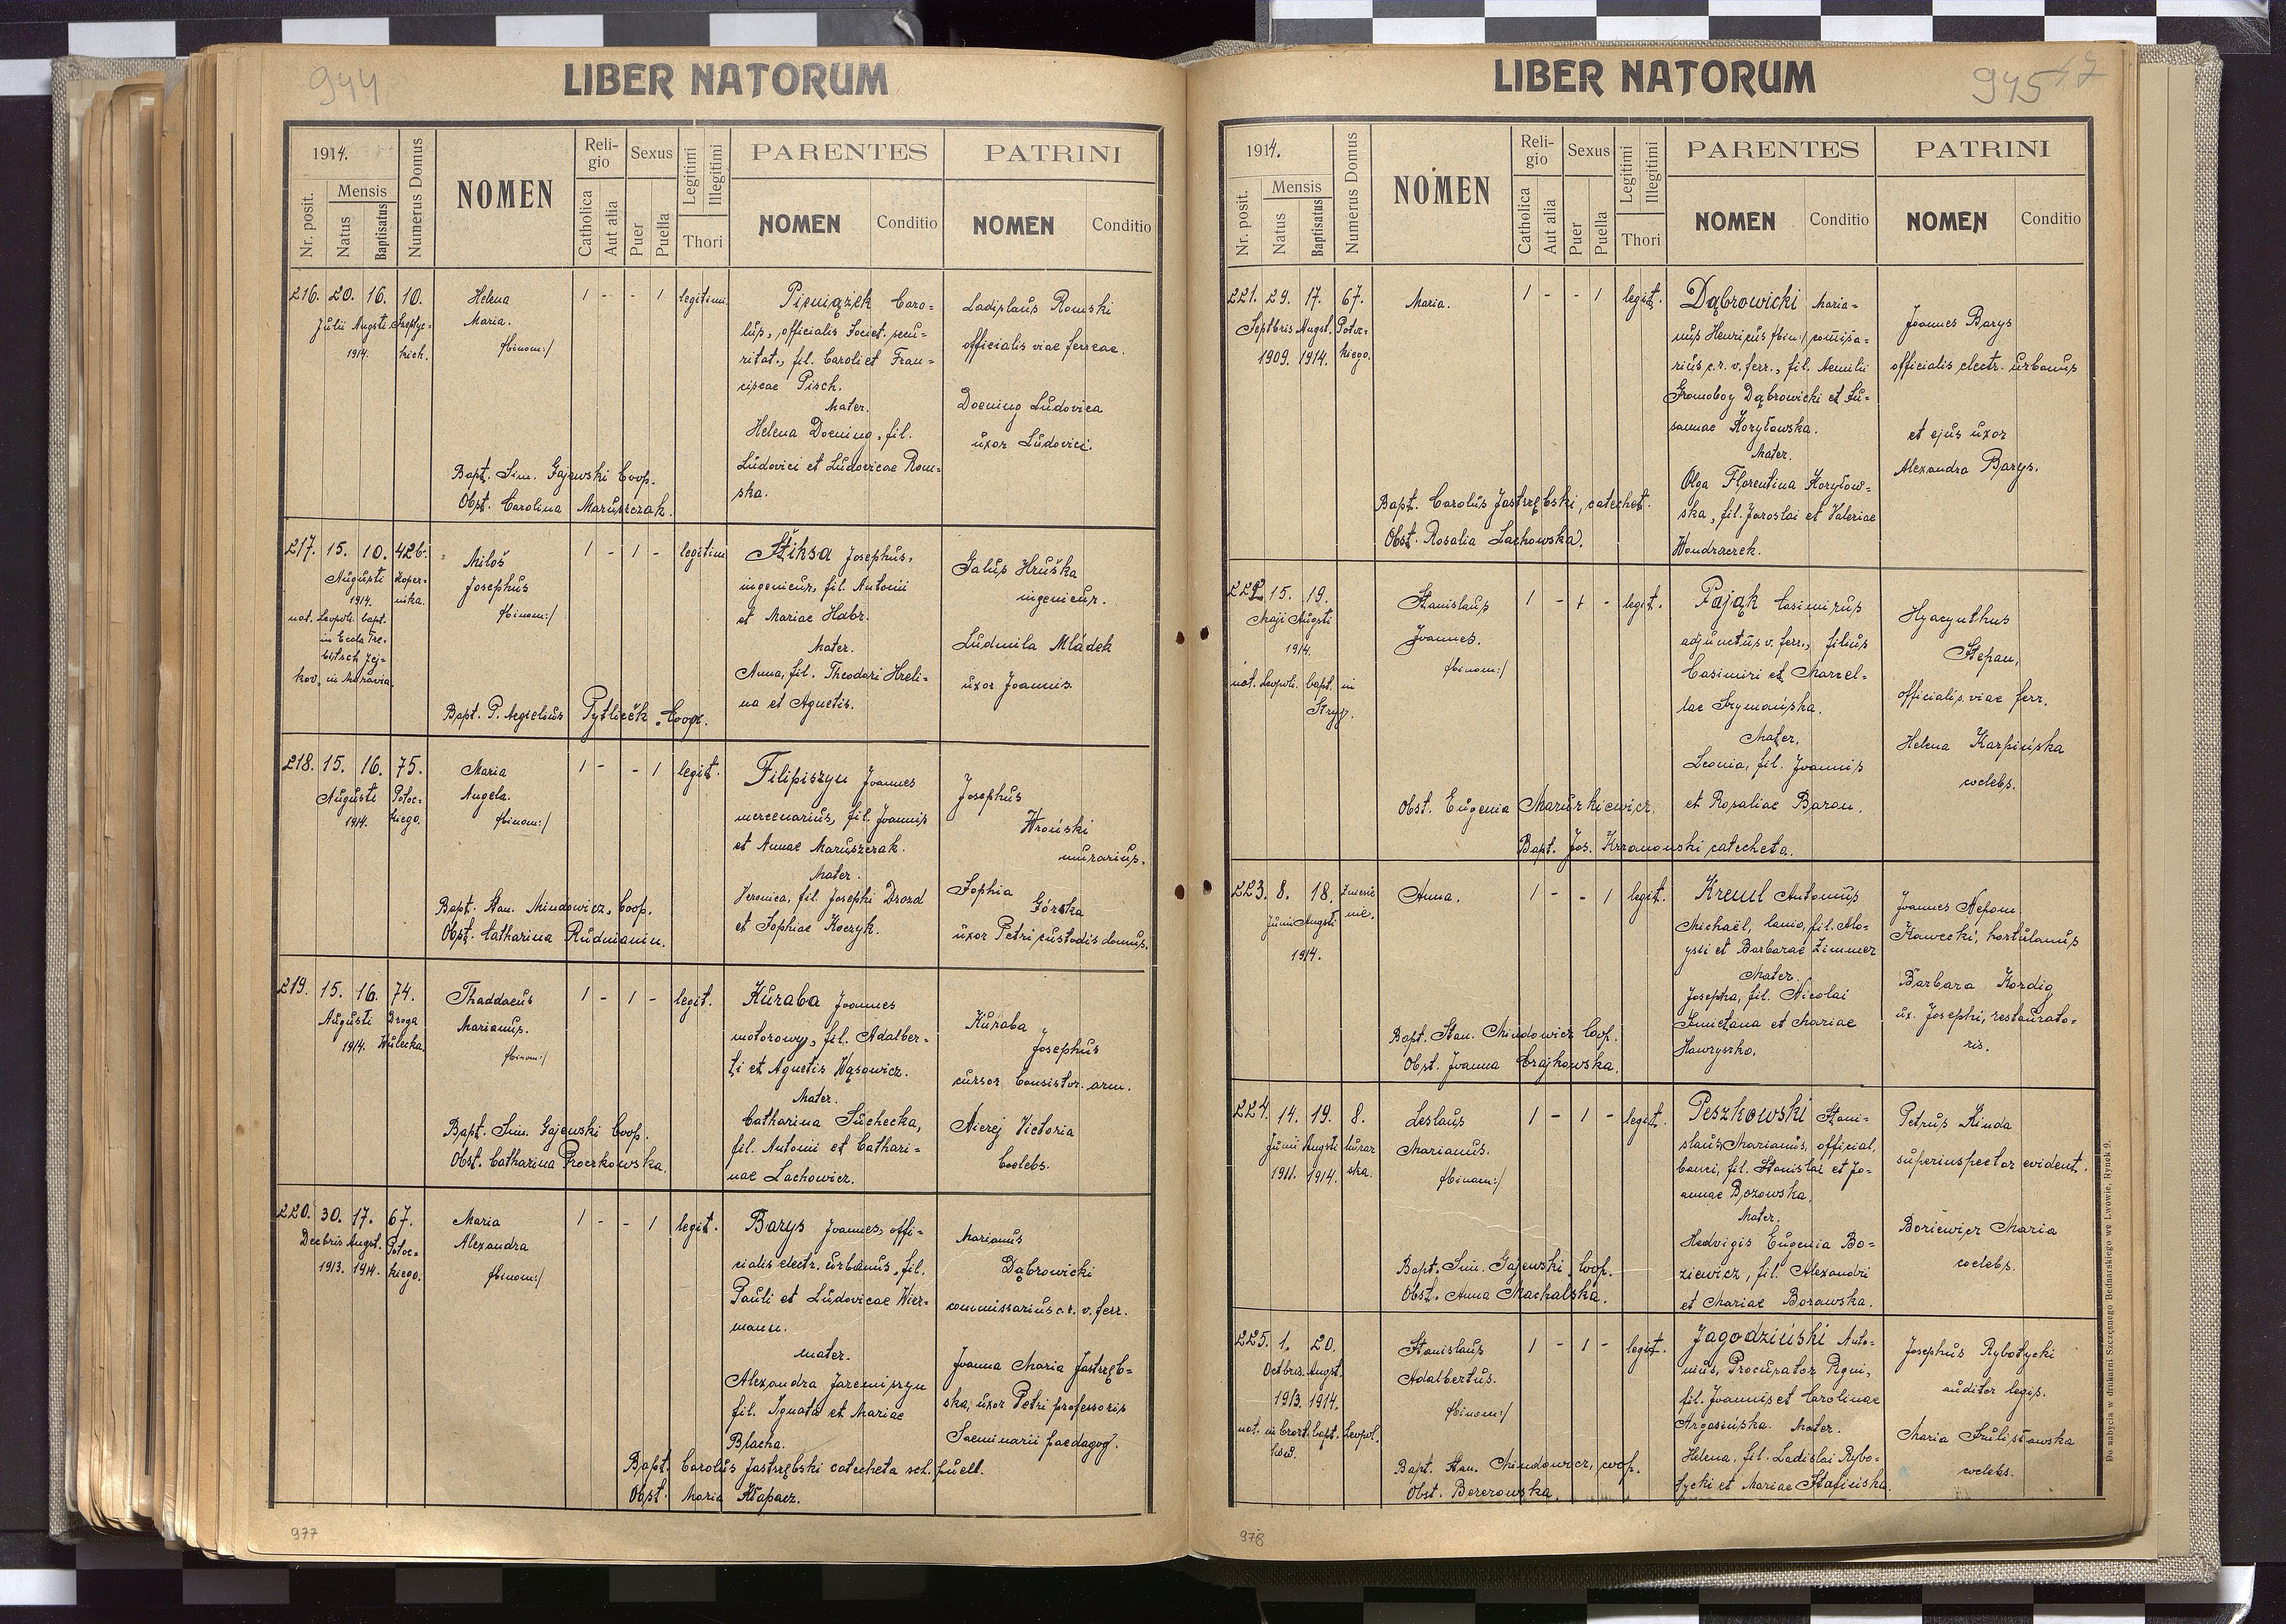 944
LIBER NATORUM
1914.
Nr. posit.
Mensis
Natus
Baptisatus
Numerus Domus
NOMEN
Religio
Catholica
Aut alia
Sexus
Puer
Puella
Legitimi
Illegitimi
Thori
PARENTES
NOMEN
Conditio
PATRINI
NOMEN
Conditio
216. 20. 16. 10.
Julii Augsti Szeptyc=
1914. kich.
Helena
Maria.
/:binom:/
1 - - 1 legitimi
Pieniążek Caro=
lus, officialis Societ. secu=
ritat., fil. Caroli et Fran=
ciscae Pisch.
Mater.
Helena Doening, fil.
Ludovici et Ludovicae Rom=
ska.
Ladislaus Romski
officialis viae ferreae.
Doening Ludovica
uxor Ludovici.
Bapt. Sim. Gajewski Coop.
Obst. Carolina Maruszczak.
217. 15. 10. 426.
Augusti Koper=
1914. nika.
nat. Leopoli. bapt.
in Eccla Tre=
bitsch Jej=
kov. in Moravia.
Miloš
Josephus
/:binom:/
1 - 1 - legitimi
Štiksa Josephus,
ingenieur, fil. Antonii
et Mariae Habr.
Mater.
Anna, fil. Theodori Hreli=
na et Agnetis.
Galus Hruška
ingenieur.
Ludmila Mládek
uxor Joannis.
Bapt. P. Aegidius Pytlíček, Coop.
218. 15. 16. 75.
Augusti Potoc=
1914. kiego.
Maria
Angela.
/:binom:/
1 - - 1 legit.
Filipiszyn Joannes
mercenarius, fil. Joannis
et Annae Maruszczak.
Mater.
Veronica, fil. Josephi Drozd
et Sophiae Koczyk.
Josephus
Wroński
murarius.
Sophia
Górska
uxor Petri, custodis domus.
Bapt. Stan. Mindowicz, Coop.
Obst. Catharina Rudnianin.
219. 15. 16. 74.
Augusti Droga
1914. Wulecka.
Thaddaeus
Marianus.
/:binom:/
1 - 1 - legit.
Kuraba Joannes
motorowy, fil. Adalber=
ti et Agnetis Wąsowicz.
Mater.
Catharina Suchecka,
fil. Antonii et Cathari=
nae Lachowicz.
Kuraba
Josephus
cursor Consistor. arm.
Nierej Victoria
Coelebs.
Bapt. Sim. Gajewski Coop.
Obst. Catharina Proczkowska.
220. 30. 17. 67.
Decbris Augst. Potoc=
1913. 1914. kiego.
Maria
Alexandra
/:binom:/
1 - - 1 legit.
Barys Joannes, offi=
cialis electr. urbanus, fil.
Pauli et Ludovicae Wier=
mann.
Mater.
Alexandra Jaremiszyn
fil. Ignatii et Mariae
Blacha.
Marianus
Dąbrowicki
commissarius c. r. v. ferr.
Joanna Maria Jastrzęb=
ska, uxor Petri professoris
Seminarii paedagog.
Bapt. Carolus Jastrzębski catecheta sch. puell.
Obst. Maria Kłapacz.
977
945
LIBER NATORUM
1914.
Nr. posit.
Mensis
Natus
Baptisatus
Numerus Domus
NOMEN
Religio
Catholica
Aut alia
Sexus
Puer
Puella
Legitimi
Illegitimi
Thori
PARENTES
NOMEN
Conditio
PATRINI
NOMEN
Conditio
221. 29. 17. 67.
Septbris Augst. Potoc=
1909. 1914. kiego.
Maria.
1 - - 1 legit.
Dąbrowicki Maria=
nus Henricus /:bin:/ comisa=
rius c. r. v. ferr., fil. Aemilii
Gromoboy Dąbrowicki et Su=
sannae Korytowska.
Mater.
Olga Florentina Korytow=
ska, fil. Jaroslai et Valeriae
Wondraczek.
Joannes Barys
officialis electr. urbanus
et ejus uxor
Alexandra Barys.
Bapt. Carolus Jastrzębski, catechet.
Obst. Rosalia Lachowska.
222. 15. 19.
Maji Augsti
1914.
nat. Leopoli. bapt. in
Stryj.
Stanislaus
Joannes.
/:binom:/
1 - 1 - legit.
Pająk Casimirus
adjunctus v. ferr., filius
Casimiri et Marcel=
lae Szymańska.
Mater.
Leonia, fil. Joannis
et Rosaliae Baran.
Hyacynthus
Stepan,
officialis viae ferr.
Helena Karpińska
coelebs.
Obst. Eugenia Maruszkiewicz.
Bapt. Jos. Krzanowski catecheta.
223. 8. 18.
Junii Augsti
1914.
Anna.
1 - - 1 legit.
Kreml Antonius
Michaël, lanio, fil. Alo=
ysii et Barbarae Zimmer
Mater.
Josepha, fil. Nicolai
Smietana et Mariae
Hawryszko.
Joannes Nepom.
Kawecki, hortulanus
Barbara Kordig
ux. Josephi, restaurato=
ris.
Bapt. Stan. Mindowicz Coop.
Obst. Joanna Czajkowska.
224. 14. 19. 8.
Junii Augsti Murar
1911. 1914. ska.
Leslaus
Marianus.
/:binom:/
1 - 1 - legit.
Peszkowski Stani=
slaus Marianus, official.
banci, fil. Stanislai et Jo=
annae Bozowska.
Mater.
Hedvigis Eugenia Bo=
ziewicz, fil. Alexandri
et Mariae Borawska.
Petrus Kinda
superinspector evident.
Boziewicz Maria
coelebs.
Bapt. Sim. Gajewski, Coop.
Obst. Anna Machalska.
225. 1. 20.
Octbris. Augst.
1913. 1914.
nat. in Czort= bapt. Leopol.
ków.
Stanislaus
Adalbertus.
/:binom:/
1 - 1 - legit.
Jagodziński Anto=
nius, Procurator Rgni,
fil. Joannis et Carolinae
Argasińska. Mater.
Helena, fil. Ladislai Rybo=
tycki et Mariae Stafińska.
Josephus Rybotycki
auditor legis.
Maria Sulisławska
coelebs.
Bapt. Stan. Mindowicz, coop.
Obst. Bererowska.
Do nabycia w drukarni Szczęsnego Bednarskiego we Lwowie, Rynek 9.
978